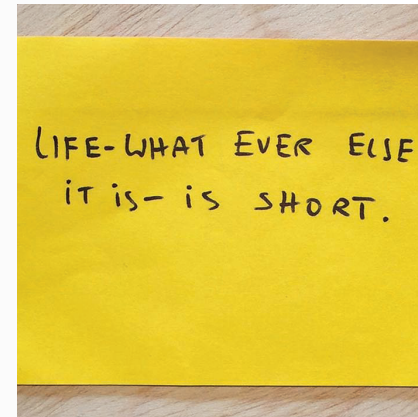 LIFE-WHAT EVER ELSE
iT is- is SHORT.